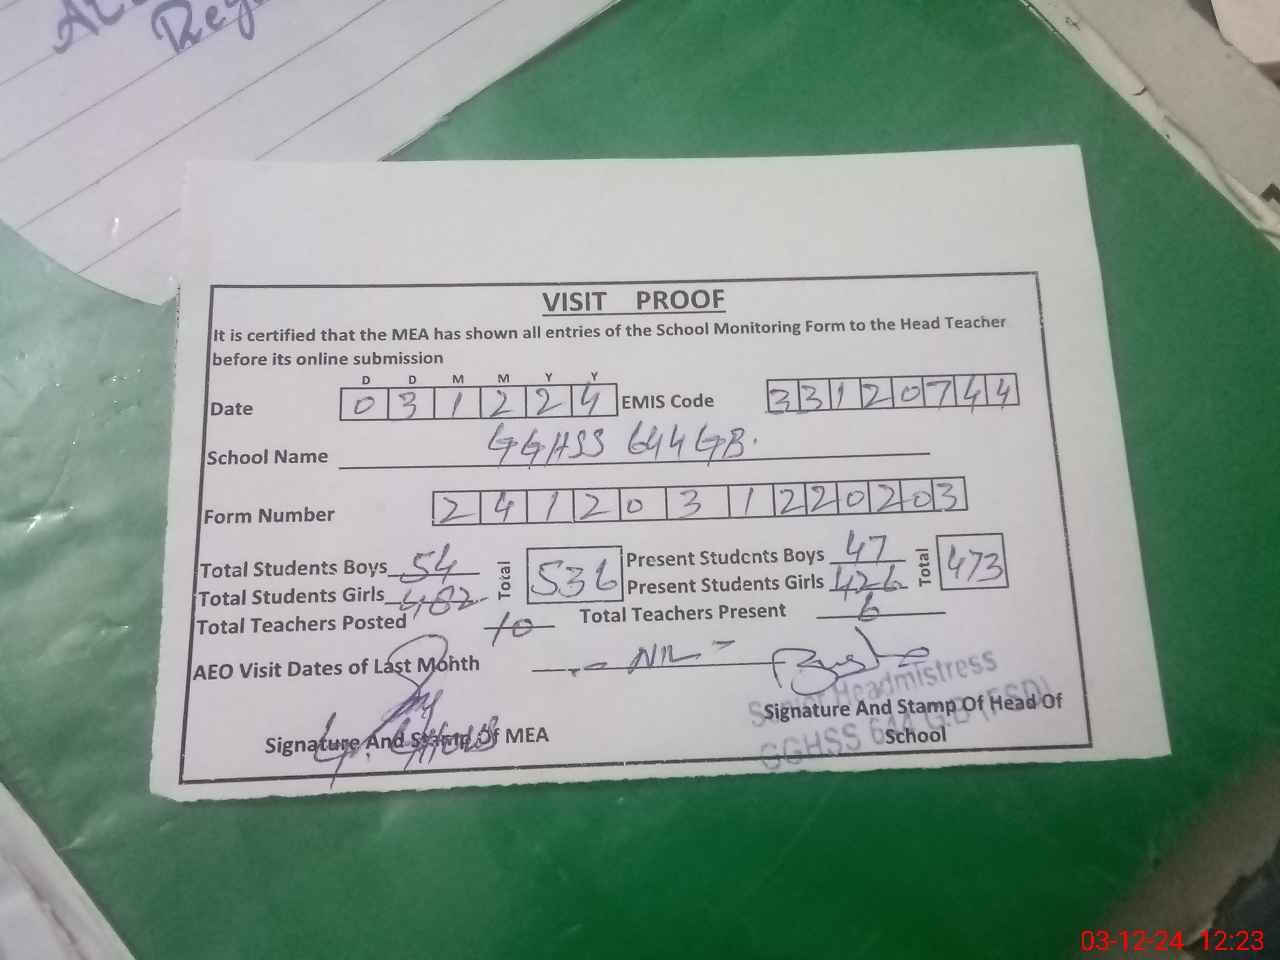 VISIT PROOF
It is certified that the MEA has shown all entries of the School Monitoring Form to the Head Teacher
before its online submission
D D M M Y Y
Date 0 3 1 2 2 4 EMIS Code 3 3 1 2 0 7 4 4
School Name GGHSS 644 GB.
Form Number 2 4 1 2 0 3 1 2 2 0 2 0 3
Total Students Boys 54 Total 536 Present Students Boys 47 Total 473
Total Students Girls 482 Present Students Girls 426
Total Teachers Posted 10 Total Teachers Present 6
AEO Visit Dates of Last Month - NIL -
Senior Headmistress
Signature And Stamp Of Head Of
School
GGHSS 644 G.B (FSD)
Signature And Stamp Of MEA
03-12-24 12:23